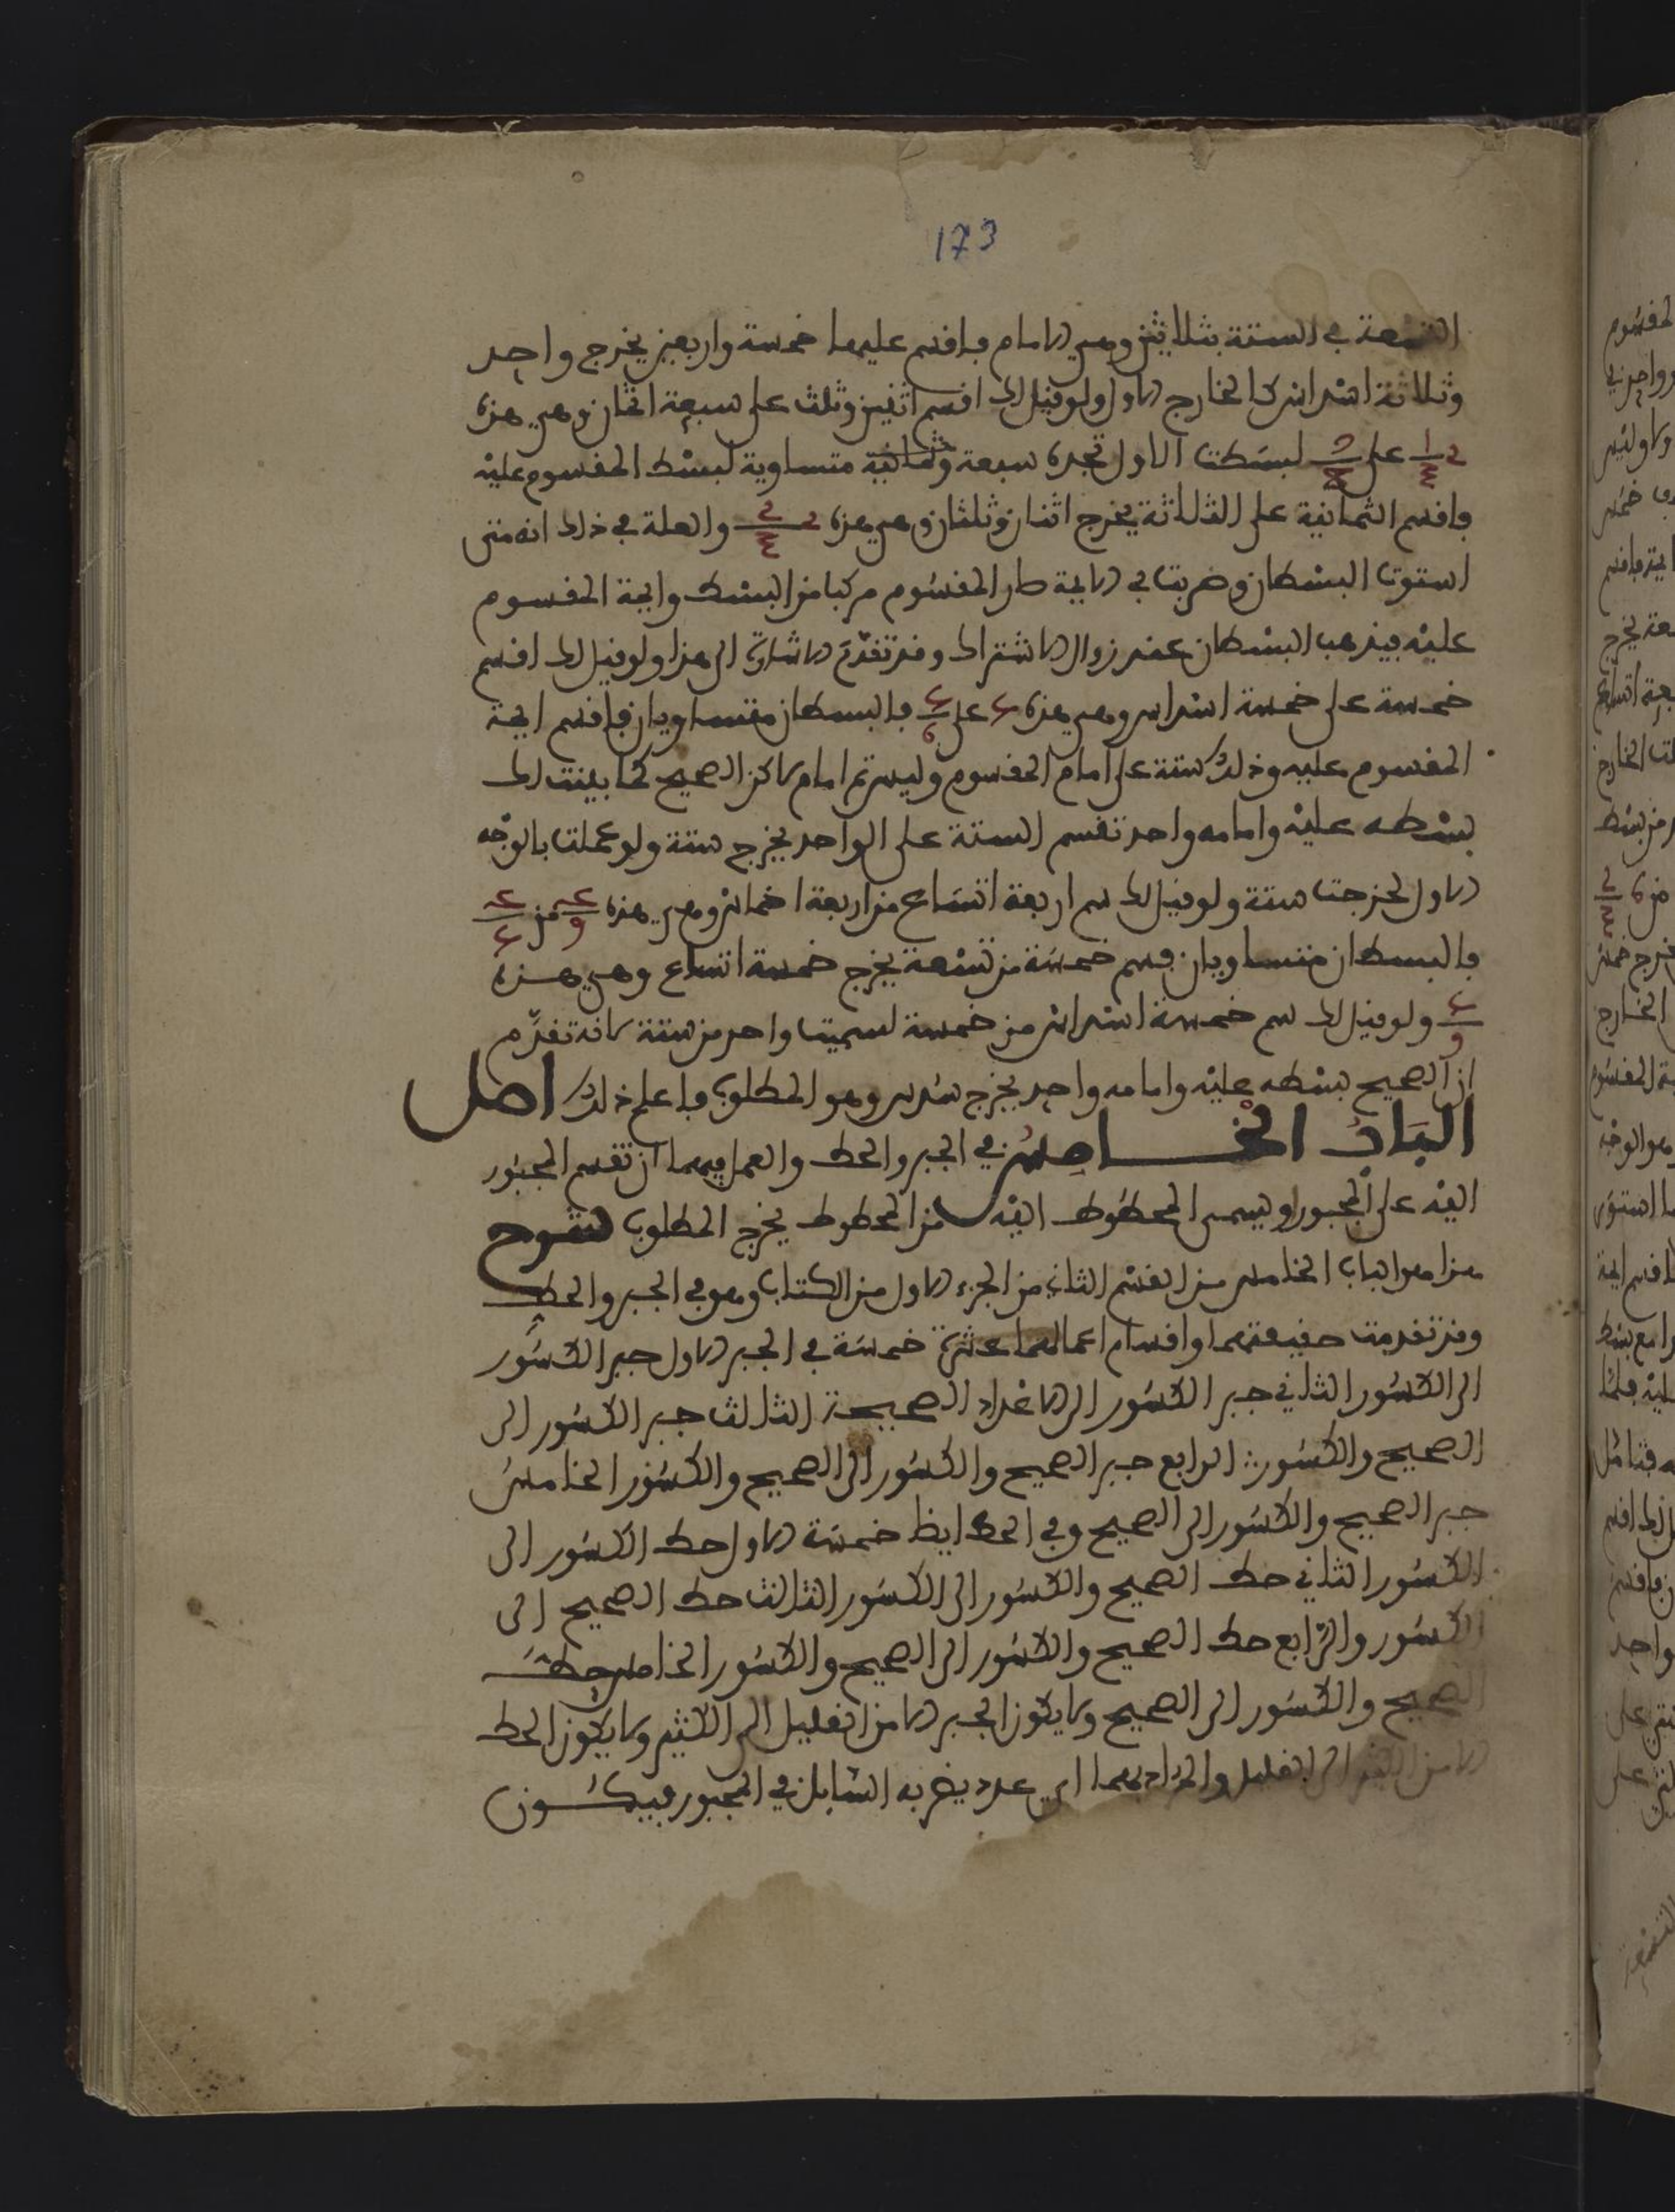 173
التسعة في الستة بثلاثين وهي الامام فاقسم عليها خمسة واربعين يخرج واحد
وثلاثة اسداس كالخارج الاول ولو قيل لك اقسم اثنين وثلث على سبعة اثمان وهي هذه
على لبسطت الاول تجده سبعة وثمانية متساوية لبسط المقسوم عليه
فاقسم الثمانية على الثلاثة يخرج اثنان وثلثان وهي هذه والعلة في ذلك انه متى
استوت البسطان وضربت في الايمة صار المقسوم مركبا من البسط وايمة المقسوم
عليه فيذهب البسطان عند زوال الاشتراك وقد تقدم الاشارة الى هذا ولو قيل لك اقسم
خمسة على خمسة اسداس وهي هذه على فالبسطان متساويان فاقسم ايمة
المقسوم عليه وذلك ستة على امام المقسوم وليس ثم امام لاكن الصحيح كما بينت لك
بسطه عليه وامامه واحد تقسم الستة على الواحد يخرج ستة ولو عملت بالوجه
الاول لخرجت ستة ولو قيل لك سم اربعة اتساع من اربعة اخماس وهي هذه من
فالبسطان متساويان فسم خمسة من تسعة يخرج خمسة اتساع وهي هذه
ولو قيل لك سم خمسة اسداس من خمسة لسميت واحد من ستة لانه تقدم
ان الصحيح بسطه عليه وامامه واحد يخرج سدس وهو المطلوب فاعلم ذلك اصل
الباب الخامس في الجبر والحط والعمل فيهما ان تقسم المجبور
اليه على المجبور او يسمى المحطوط اليه من المحطوط يخرج المطلوب شرح
هذا هو الباب الخامس من القسم الثاني من الجزء الاول من الكتاب وهو في الجبر والحط
وقد تقدمت حقيقتهما واقسام اعمالهما عشرة خمسة في الجبر الاول جبر الكسور
الى الكسور الثاني جبر الكسور الى الاعداد الصحيحة الثالث جبر الكسور الى
الصحيح والكسور الرابع جبر الصحيح والكسور الى الصحيح والكسور الخامس
جبر الصحيح والكسور الى الصحيح وفي الحط ايظا خمسة الاول حط الكسور الى
الكسور الثاني حط الصحيح والكسور الى الكسور الثالث حط الصحيح الى
الكسور والرابع حط الصحيح والكسور الى الصحيح والكسور الخامس حط
الصحيح والكسور الى الصحيح ولا يكون الجبر الا من القليل الى الكثير ولا يكون الحط
الا من الكثير الى القليل والمراد بهما اي عدد يضر به السايل في المجبور فيكون